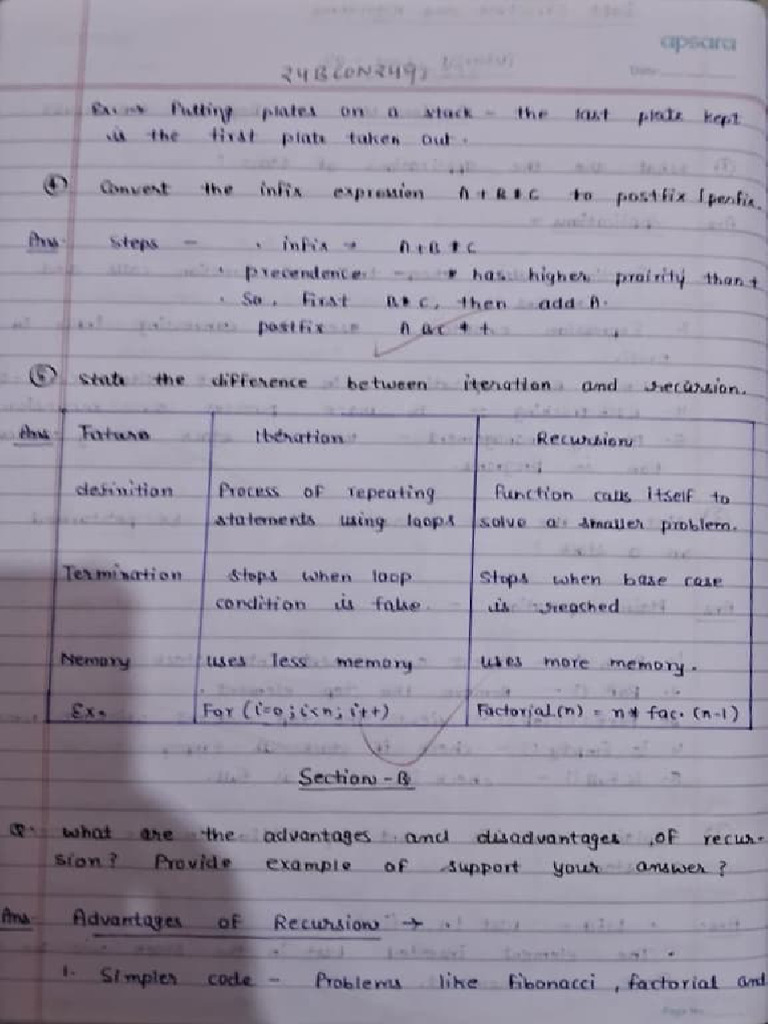 apsara
24BCON2491
Ex:- Putting plates on a stack - the last plate kept
is the first plate taken out.
④ Convert the infix expression A + B * C to postfix / penfix.
Ans. Steps - • infix → A + B * C
• precendence - * has higher prairity than +
• So, first B * C, then add A.
postfix = A BC * +
⑤ State the difference between iteration and recursion.
Ans. Fature Iteration Recursion
definition Process of repeating function calls itself to
statements using loops solve a smaller problem.
Termination stops when loop Stops when base case
condition is false. is reached
Nemory uses less memory uses more memory.
Ex. For (i=0; i<n; i++) Factorial(n) = n * fac. (n-1)
Section - B
Q. what are the advantages and disadvantages of recur-
sion? Provide example of support your answer?
Ans Advantages of Recursion →
1. Simpler code - Problems like fibonacci, factorial and